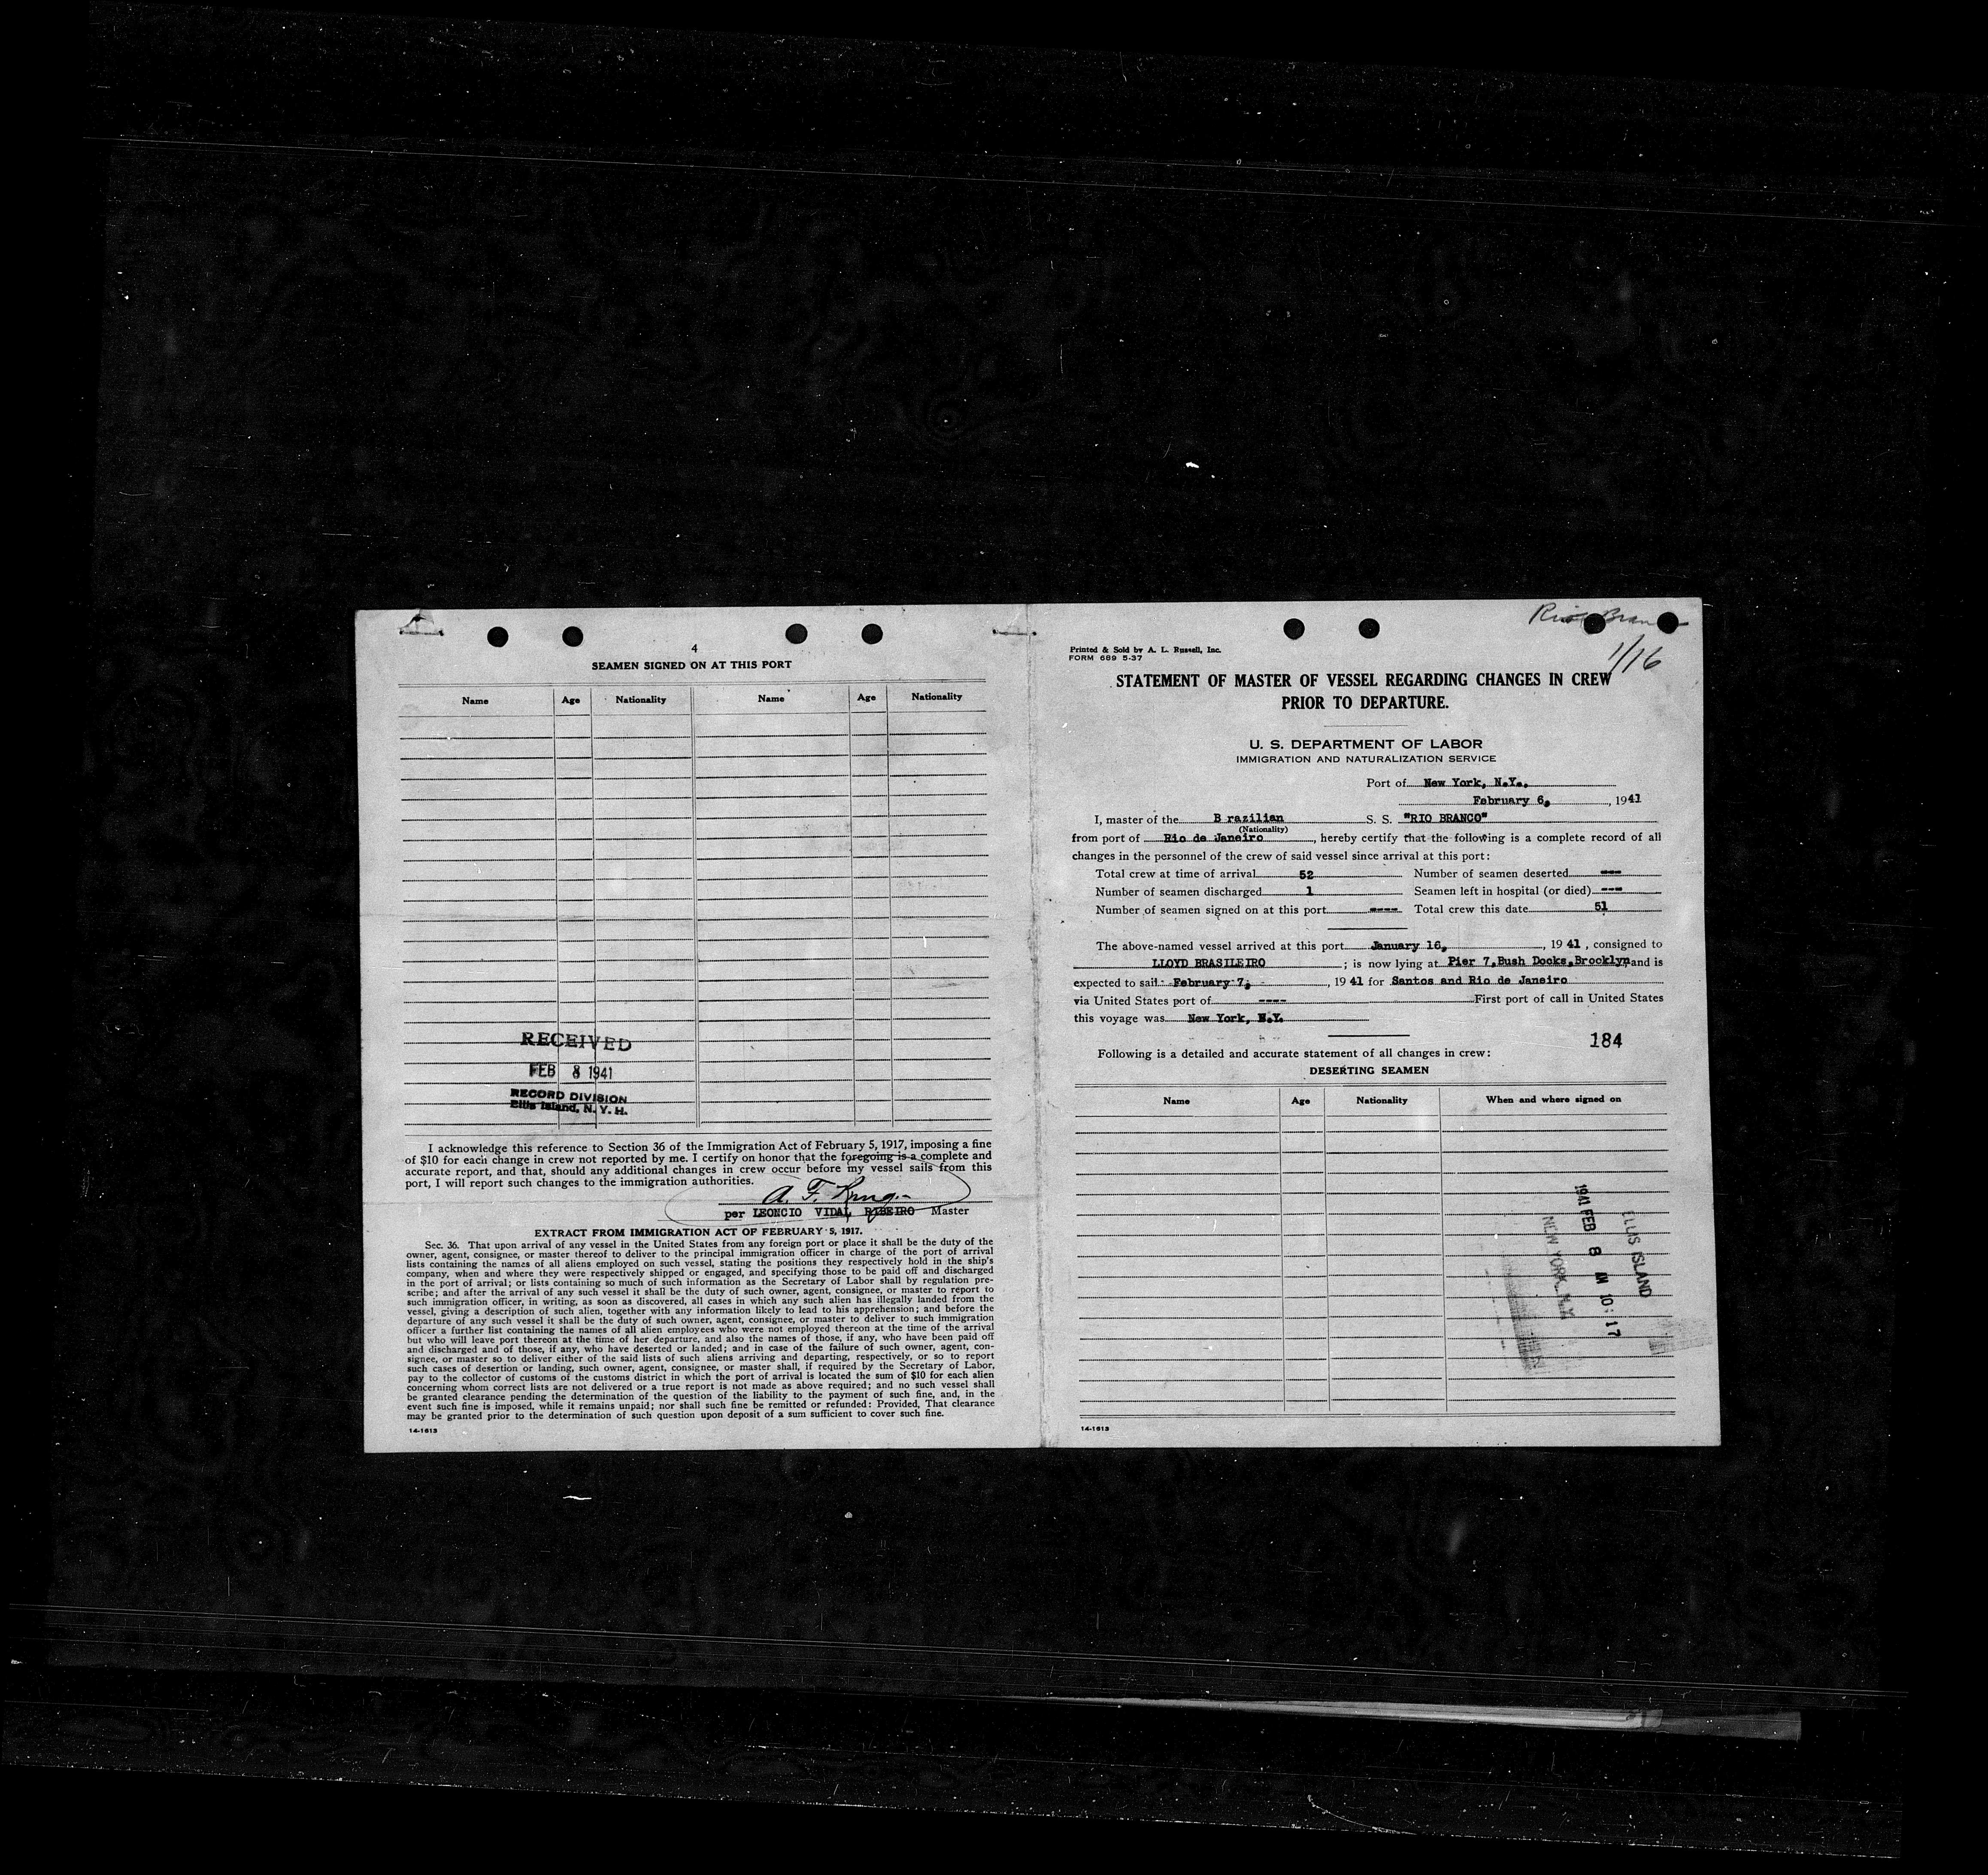 4
SEAMEN SIGNED ON AT THIS PORT
Name Age Nationality Name Age Nationality
RECEIVED
FEB 8 1941
RECORD DIVISION
Ellis Island, N. Y. H.
I acknowledge this reference to Section 36 of the Immigration Act of February 5, 1917, imposing a fine
of $10 for each change in crew not reported by me. I certify on honor that the foregoing is a complete and
accurate report, and that, should any additional changes in crew occur before my vessel sails from this
port, I will report such changes to the immigration authorities.
A. F.
per LEONCIO VIDAL RIBEIRO Master
EXTRACT FROM IMMIGRATION ACT OF FEBRUARY 5, 1917.
Sec. 36. That upon arrival of any vessel in the United States from any foreign port or place it shall be the duty of the
owner, agent, consignee, or master thereof to deliver to the principal immigration officer in charge of the port of arrival
lists containing the names of all aliens employed on such vessel, stating the positions they respectively hold in the ship's
company, when and where they were respectively shipped or engaged, and specifying those to be paid off and discharged
in the port of arrival; or lists containing so much of such information as the Secretary of Labor shall by regulation pre-
scribe; and after the arrival of any such vessel it shall be the duty of such owner, agent, consignee, or master to report to
such immigration officer, in writing, as soon as discovered, all cases in which any such alien has illegally landed from the
vessel, giving a description of such alien, together with any information likely to lead to his apprehension; and before the
departure of any such vessel it shall be the duty of such owner, agent, consignee, or master to deliver to such immigration
officer a further list containing the names of all alien employees who were not employed thereon at the time of the arrival
but who will leave port thereon at the time of her departure, and also the names of those, if any, who have been paid off
and discharged and of those, if any, who have deserted or landed; and in case of the failure of such owner, agent, con-
signee, or master so to deliver either of the said lists of such aliens arriving and departing, respectively, or so to report
such cases of desertion or landing, such owner, agent, consignee, or master shall, if required by the Secretary of Labor,
pay to the collector of customs of the customs district in which the port of arrival is located the sum of $10 for each alien
concerning whom correct lists are not delivered or a true report is not made as above required; and no such vessel shall
be granted clearance pending the determination of the question of the liability to the payment of such fine, and, in the
event such fine is imposed, while it remains unpaid; nor shall such fine be remitted or refunded: Provided, That clearance
may be granted prior to the determination of such question upon deposit of a sum sufficient to cover such fine.
14-1613
Rio Bran
1/16
Printed & Sold by A. L. Russell, Inc.
FORM 689 5-37
STATEMENT OF MASTER OF VESSEL REGARDING CHANGES IN CREW
PRIOR TO DEPARTURE.
U. S. DEPARTMENT OF LABOR
IMMIGRATION AND NATURALIZATION SERVICE
Port of New York, N.Y.,
February 6, , 1941
I, master of the B razilian S. S. "RIO BRANCO"
(Nationality)
from port of Rio de Janeiro , hereby certify that the following is a complete record of all
changes in the personnel of the crew of said vessel since arrival at this port:
Total crew at time of arrival 52 Number of seamen deserted ---
Number of seamen discharged 1 Seamen left in hospital (or died) ---
Number of seamen signed on at this port ---- Total crew this date 51
The above-named vessel arrived at this port January 16, , 19 41 , consigned to
LLOYD BRASILEIRO ; is now lying at Pier 7,Bush Docks,Brooklyn and is
expected to sail February 7, , 19 41 for Santos and Rio de Janeiro
via United States port of ---- First port of call in United States
this voyage was New York, N.Y.
184
Following is a detailed and accurate statement of all changes in crew:
DESERTING SEAMEN
Name Age Nationality When and where signed on
ELLIS ISLAND
1941 FEB 8 AM 10:17
NEW YORK, N.Y.
14-1613